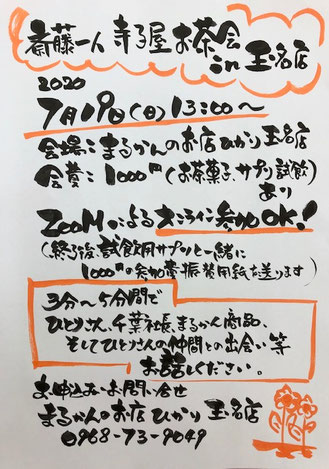 斎藤一人 寺子屋お茶会
in 玉名店
2020
7月19日(日)13:00〜
会場:まるかんのお店ひかり玉名店
会費:1000円(お茶菓子、サプリ試飲)
あり
ZooMによるきこうに参加OK!
(終了後、試飲用サプリと一緒に
1000円の参加費振替用紙を送ります)
3分〜5分間で
ひとりさん、千葉社長、まるかん商品、
そしてひとりさんの仲間との出会い等
お話しください。
お申込み・お問い合せ
まるかんのお店ひかり玉名店
0968-73-9049